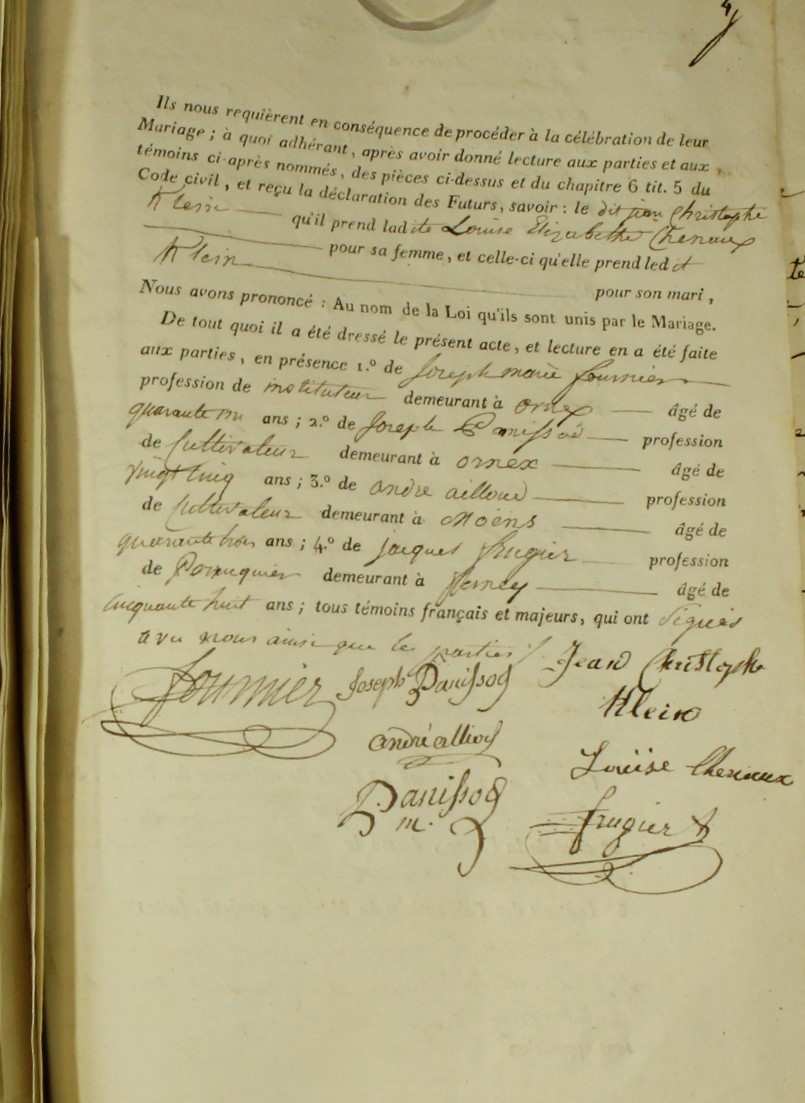 Ils nous requièrent en conséquence de procéder à la célébration de leur
Mariage ; à quoi adhérant, après avoir donné lecture aux parties et aux
témoins ci-après nommés, des pièces ci-dessus et du chapitre 6 tit. 5 du
Code civil, et reçu la déclaration des Futurs, savoir : le dit jean Christophe
Klein qu'il prend ladite Louise Elizabethe Chenaux
pour sa femme, et celle-ci qu'elle prend led it
Klein pour son mari,
Nous avons prononcé : Au nom de la Loi qu'ils sont unis par le Mariage.
De tout quoi il a été dressé le présent acte, et lecture en a été faite
aux parties, en présence 1.º de Joseph marie fournier
profession de instituteur demeurant à ornex âgé de
quarante un ans ; 2.º de Joseph Panissod profession
de Cultivateur demeurant à ornex âgé de
vingt cinq ans ; 3.º de andré alliod profession
de Cultivateur demeurant à Moëns âgé de
quarante trois ans ; 4.º de jacques frugier profession
de Perruquier demeurant à ferney âgé de
cinquante huit ans ; tous témoins français et majeurs, qui ont signés
avec nous ainsi que les parties
fournier Joseph Panissod Jean Christophe
Klein
andré alliod
Louise Chenaux
Panissod
m.
frugier